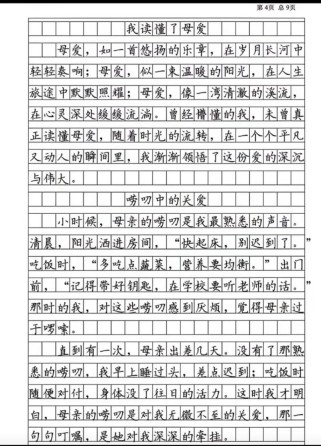 第4页 总9页
我读懂了母爱
母爱，如一首悠扬的乐章，在岁月长河中
轻轻奏响；母爱，似一束温暖的阳光，在人生
旅途中默默照耀；母爱，像一湾清澈的溪流，
在心灵深处缓缓流淌。曾经懵懂的我，未曾真
正读懂母爱，随着时光的流转，在一个个平凡
又动人的瞬间里，我渐渐领悟了这份爱的深沉
与伟大。
唠叨中的关爱
小时候，母亲的唠叨是我最熟悉的声音。
清晨，阳光洒进房间，“快起床，别迟到了。”
吃饭时，“多吃点蔬菜，营养要均衡。”出门
前，“记得带好钥匙，在学校要听老师的话。”
那时的我，对这些唠叨感到厌烦，觉得母亲过
于啰嗦。
直到有一次，母亲出差几天。没有了那熟
悉的唠叨，我早上睡过头，差点迟到；吃饭时
随便对付，身体没了往日的活力。这时我才明
白，母亲的唠叨是对我无微不至的关爱，那一
句句叮嘱，是她对我深深的牵挂。